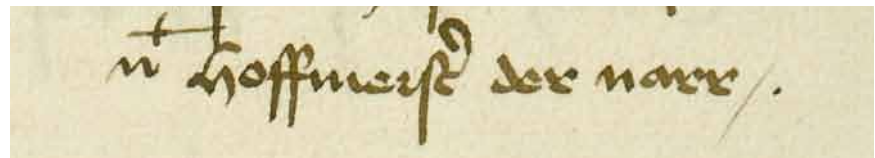 hoffmeist' der narr /.